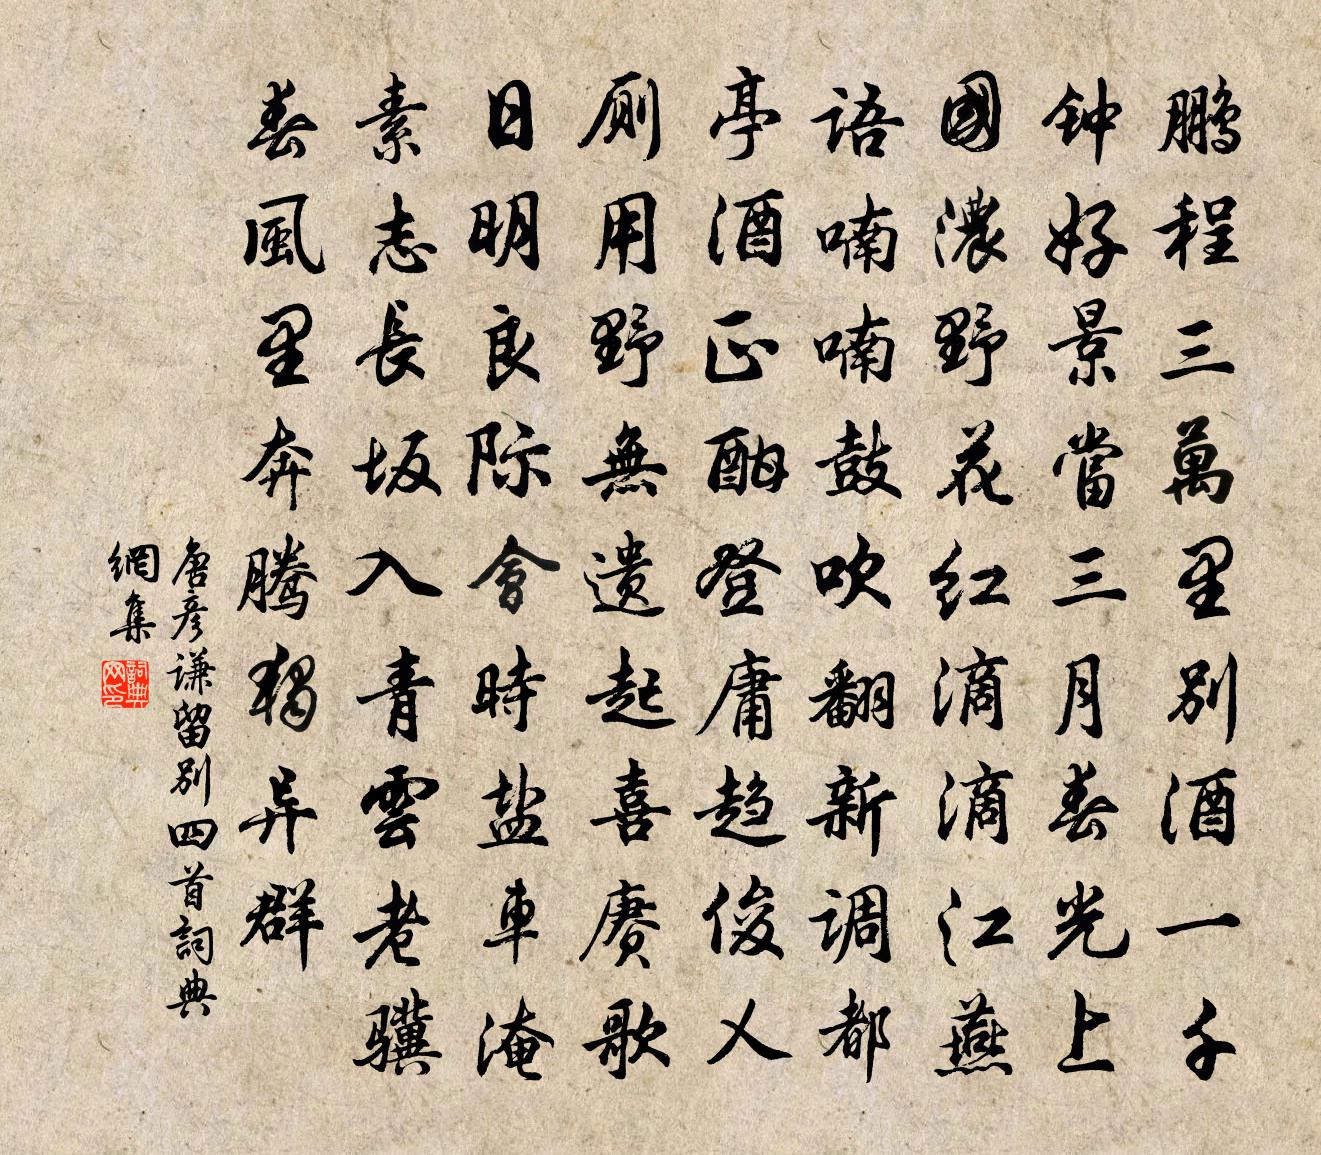 鹏程三萬里别酒一千
钟好景當三月春光上
國濃野花红滴滴江燕
語喃喃鼓吹翻新调都
亭酒正酣登庸趋俊人
厕用野無遗起喜赓歌
日明良际會時盐車淹
素志長坂入青雲老骥
春風里奔腾獨异群
唐彦谦留别四首詞典
網集
詞典
网印